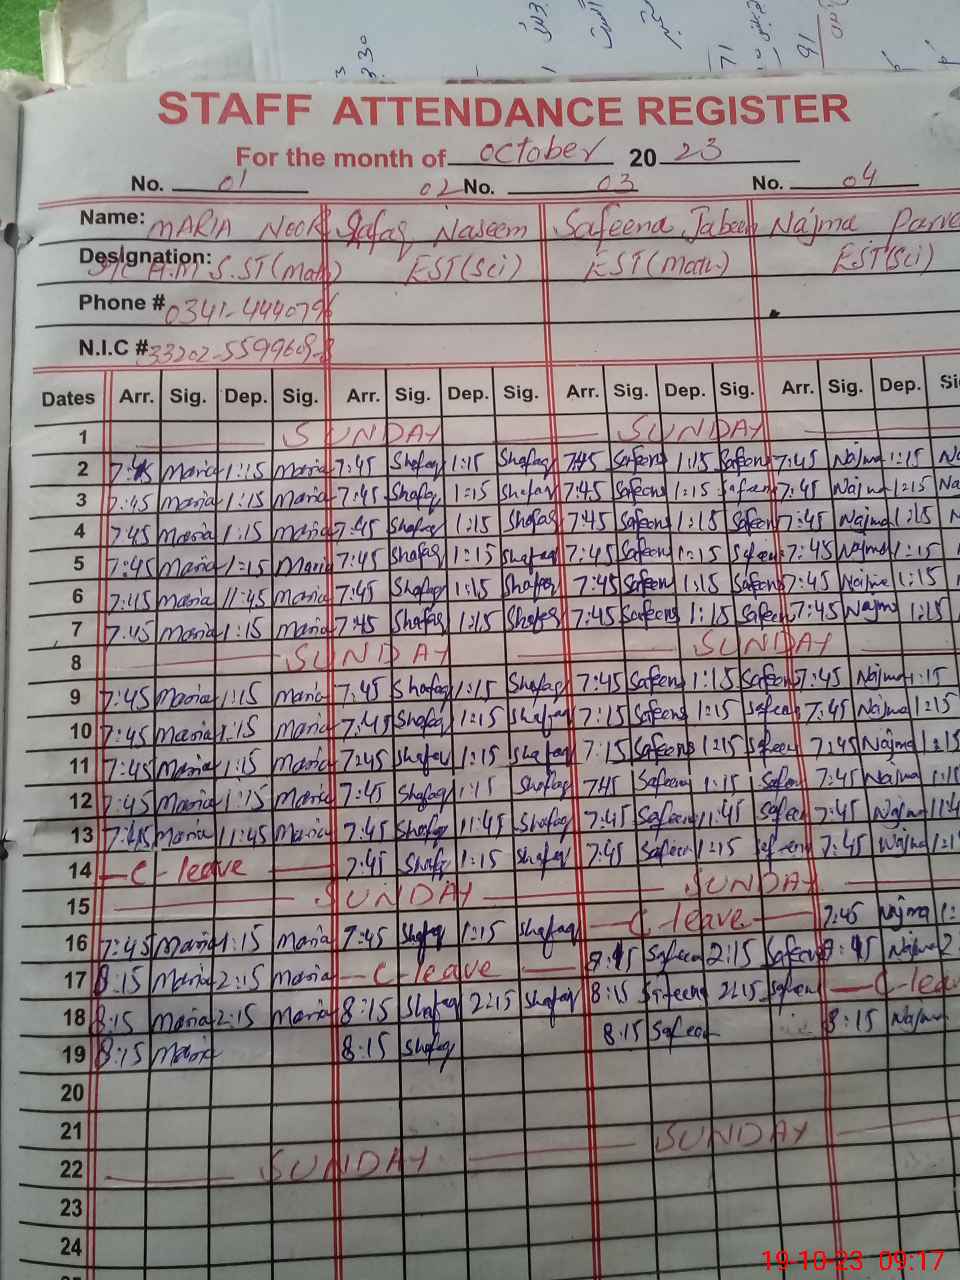 3
3.30
71
91
STAFF ATTENDANCE REGISTER
For the month of October 20 23
No. 01 02 No. 03 No. 04
Name: MARIA NOOR Shafaq Naseem Safeena Jabeen Najma Parve
Designation: I/C H.M S.ST(Math) EST(Sci) EST(Math) EST(Sci)
Phone # 0341-4440796
N.I.C # 33202-5599609-8
Dates Arr. Sig. Dep. Sig. Arr. Sig. Dep. Sig. Arr. Sig. Dep. Sig. Arr. Sig. Dep. Si
1 SUNDAY SUNDAY
2 7:45 Maria 1:15 Maria 7:45 Shafaq 1:15 Shafaq 7:45 Safeena 1:15 Safeena 7:45 Najma 1:15 Na
3 7:45 Maria 1:15 Maria 7:45 Shafaq 1:15 Shafaq 7:45 Safeena 1:15 Safeena 7:45 Najma 1:15 Na
4 7:45 Maria 1:15 Maria 7:45 Shafaq 1:15 Shafaq 7:45 Safeena 1:15 Safeena 7:45 Najma 1:15 N
5 7:45 Maria 1:15 Maria 7:45 Shafaq 1:15 Shafaq 7:45 Safeena 1:15 Safeena 7:45 Najma 1:15
6 7:45 Maria 11:45 Maria 7:45 Shafaq 1:15 Shafaq 7:45 Safeena 1:15 Safeena 7:45 Najma 1:15
7 7:45 Maria 1:15 Maria 7:45 Shafaq 1:15 Shafaq 7:45 Safeena 1:15 Safeena 7:45 Najma 1:15
8 SUNDAY SUNDAY
9 7:45 Maria 1:15 Maria 7:45 Shafaq 1:15 Shafaq 7:45 Safeena 1:15 Safeena 7:45 Najma 1:15
10 7:45 Maria 1:15 Maria 7:45 Shafaq 1:15 Shafaq 7:15 Safeena 1:15 Safeena 7:45 Najma 1:15
11 7:45 Maria 1:15 Maria 7:45 Shafaq 1:15 Shafaq 7:15 Safeena 1:15 Safeena 7:45 Najma 1:15
12 7:45 Maria 1:15 Maria 7:45 Shafaq 1:15 Shafaq 7:45 Safeena 1:15 Safeena 7:45 Najma 1:15
13 7:45 Maria 11:45 Maria 7:45 Shafaq 11:45 Shafaq 7:45 Safeena 11:45 Safeena 7:45 Najma 11:4
14 C-leave 7:45 Shafaq 1:15 Shafaq 7:45 Safeena 1:15 Safeena 7:45 Najma 1:1
15 SUNDAY SUNDAY
16 7:45 Maria 1:15 Maria 7:45 Shafaq 1:15 Shafaq C leave 7:45 Najma 1:
17 8:15 Maria 2:15 Maria C-leave Safeena 2:15 Safeena Najma 2
18 8:15 Maria 2:15 Maria 8:15 Shafaq 2:15 Shafaq 8:15 Safeena 2:15 Safeena C-leav
19 8:15 Maria 8:15 Shafaq 8:15 Safeena 8:15 Najma
20
21
22 SUNDAY SUNDAY
23
24
19-10-23 09:17